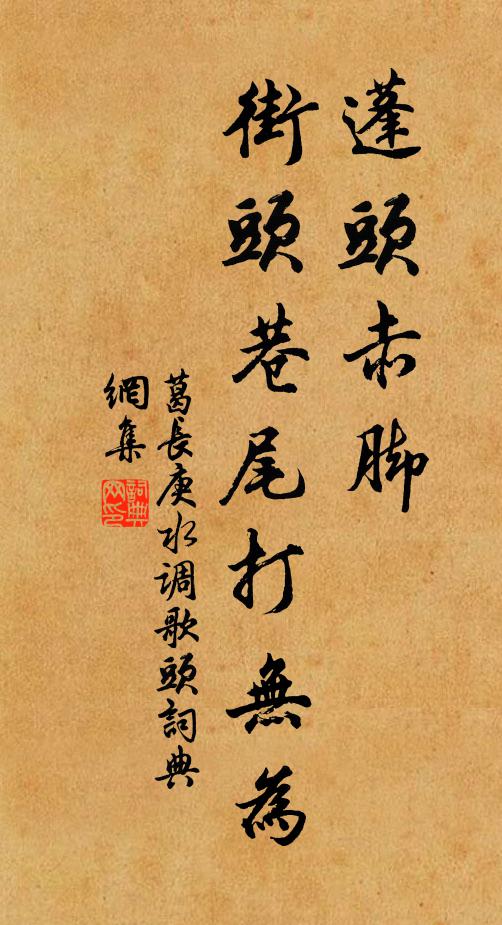 蓬頭赤脚
街頭巷尾打無為
葛長庚水调歌頭詞典
網集
詞典網印